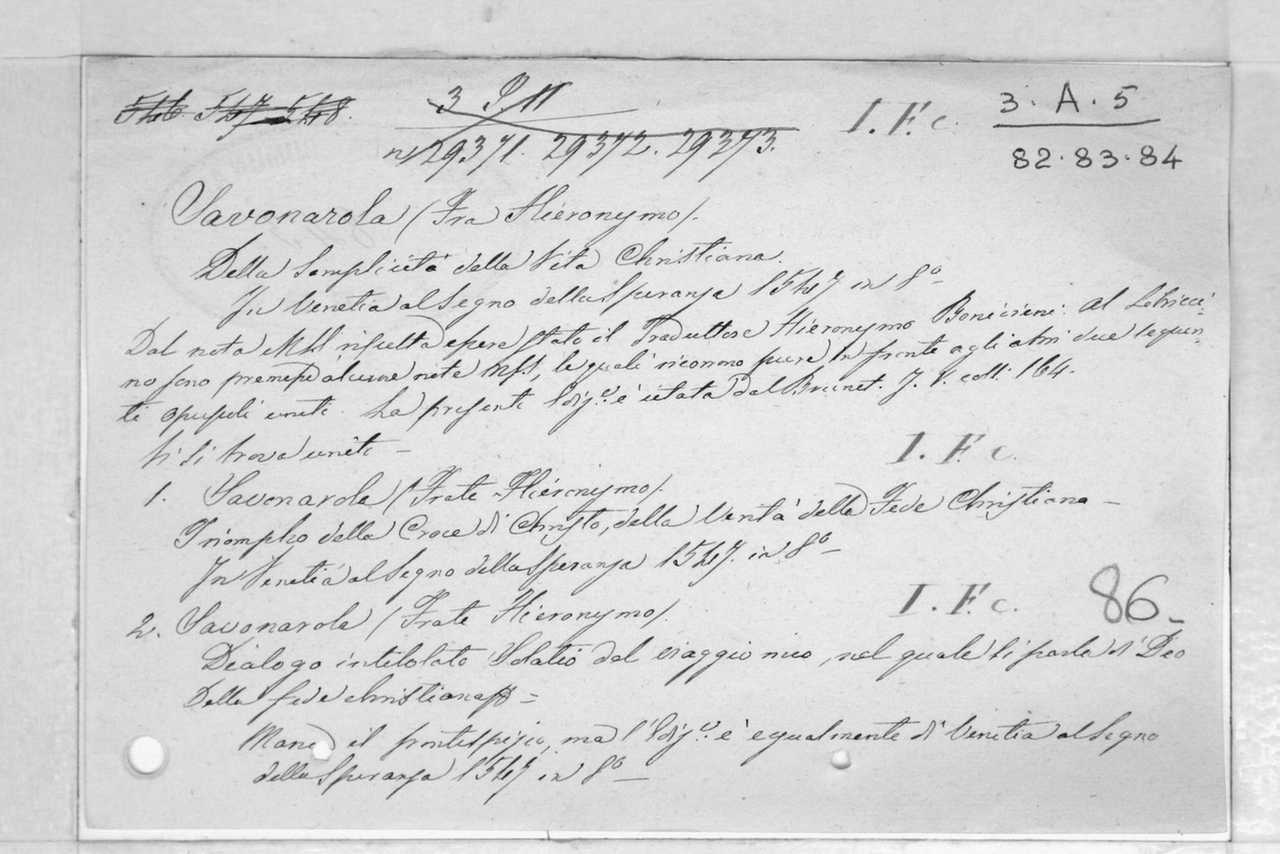 546. 547. 548.
3 P. 11
I. F. c.
3. A. 5
nⁱ 29371. 29372. 29373.
82. 83. 84
Savonarola (Fra Hieronymo).
Della Semplicità della Vita Christiana.
In Venetia al Segno della Speranza 1547 in 8º
Dal nota MS. risulta essere stato il Traduttore Hieronymo Benivieni. Al
no sono premesse alcune note MSS, le quali ricorrono pure in fronte agli altri due seguen-
ti opuscoli uniti. La presente Ediz.e è citata dal Brunet. T. V. coll. 164.
Vi si trova unito –
I. F. c.
1. Savonarola (Frate Hieronymo).
Triompho della Croce di Christo, della Verità della Fede Christiana –
In Venetia al Segno della Speranza 1547. in 8º –
I. F. c.
86 –
2. Savonarola (Frate Hieronymo).
Dialogo intitolato Solatio del viaggio mio, nel quale si parla di Deo
Della fede christiana =
Manca il frontespizio, ma l'Ediz.e è egualmente di Venetia al Segno
della Speranza 1547 in 8º –